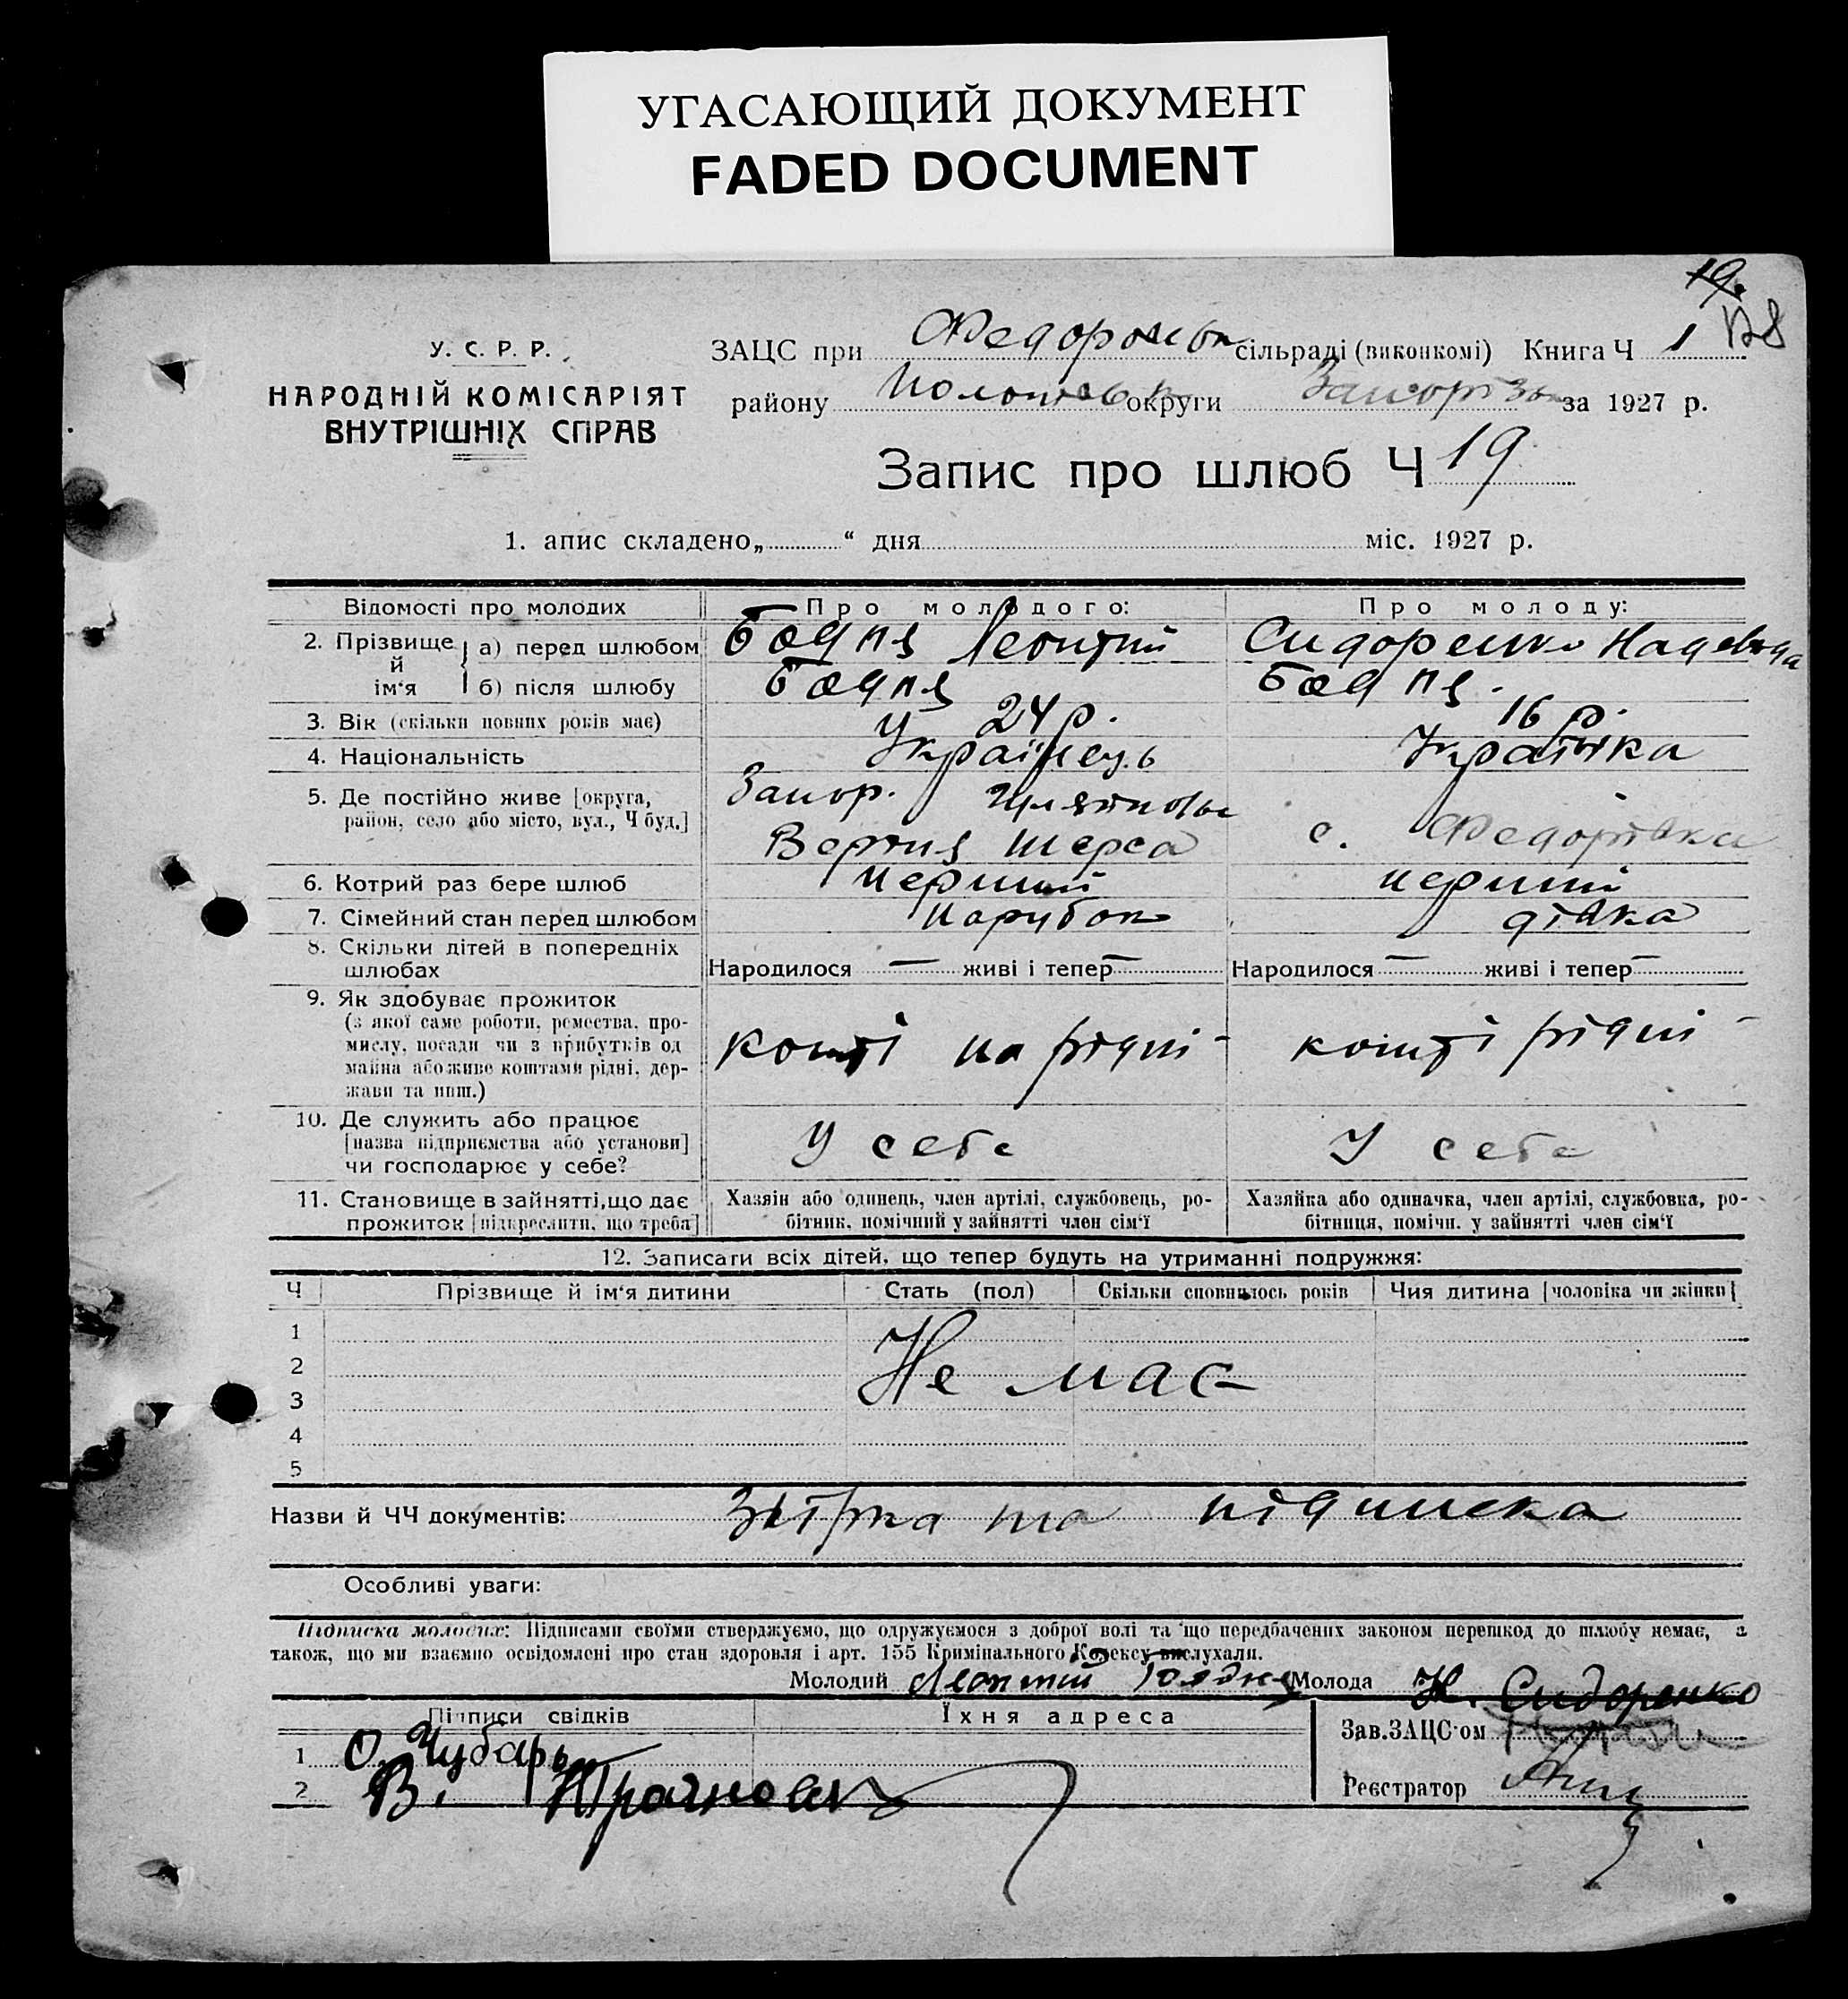 УГАСАЮЩИЙ ДОКУМЕНТ
FADED DOCUMENT
19
У. С. Р. Р.
НАРОДНІЙ КОМІСАРІЯТ
ВНУТРІШНІХ СПРАВ
ЗАЦС при Федоровськ сільраді (виконкомі) Книга Ч 1
району округи Запорізьк за 1927 р.
Запис про шлюб Ч 19
1. апис складено „ “ дня міс. 1927 р.
Відомості про молодих Про молодого: Про молоду:
2. Прізвище й ім'я а) перед шлюбом Бодня Леонтий Сидоренко Надежда
б) після шлюбу Бодня Бодня.
3. Вік (скільки повних років має) 24 р. 16 р.
4. Національність Українець Українка
5. Де постійно живе [округа, Запор.
район, село або місто, вул., Ч буд.] с. Федорівка
6. Котрий раз бере шлюб перший перший
7. Сімейний стан перед шлюбом парубок дівка
8. Скільки дітей в попередніх
шлюбах Народилося — живі і тепер — Народилося — живі і тепер —
9. Як здобуває прожиток
(з якої саме роботи, ремества, про-
мислу, посади чи з прибутків од
майна або живе коштами рідні, дер-
жави та инш.)
кошті на рідні - кошті рідні -
10. Де служить або працює
[назва підприємства або установи]
чи господарює у себе?
У себе У себе
11. Становище в зайнятті, що дає Хазяін або одинець, член артілі, службовець, ро- Хазяйка або одиначка, член артілі, службовка, ро-
прожиток [підкреслити, що треба] бітник, помічний у зайнятті член сім'ї бітниця, помічн. у зайнятті член сім'ї
12. Записати всіх дітей, що тепер будуть на утриманні подружжя:
Ч Прізвище й ім'я дитини Стать (пол) Скільки сповнилось років Чия дитина [чоловіка чи жінки]
1
2 Не має
3
4
5
Назви й ЧЧ документів: та підписка
Особливі уваги:
Підписка молодих: Підписами своїми стверджуємо, що одружуємося з доброї волі та що передбачених законом перешкод до шлюбу немає, а
також, що ми взаємно освідомлені про стан здоровля і арт. 155 Кримінального Кодексу вислухали.
Молодий Леонтий Бодня Молода Н. Сидоренко
Підписи свідків Їхня адреса
Зав. ЗАЦС'ом
1 О. Чубарь
2 В. Реєстратор